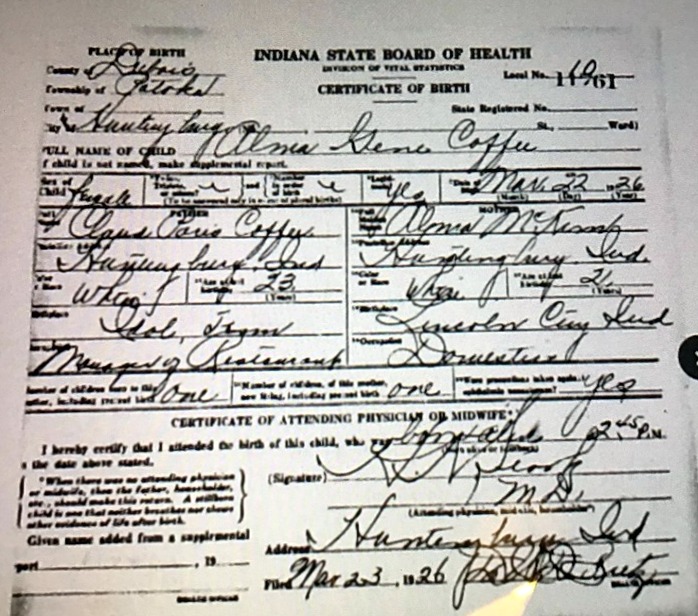 PLACE OF BIRTH
INDIANA STATE BOARD OF HEALTH
County of Dubois
DIVISION OF VITAL STATISTICS
Local No. 10
11961
Township of Patoka
CERTIFICATE OF BIRTH
Town of
State Registered No.
City of Huntingburg
St., Ward)
FULL NAME OF CHILD Alma Gene Coffee
If child is not named, make supplemental report.
Sex of Child female
and Number in order of birth
yes
Date of Mar. 22 1926
(To be answered only in event of plural births)
(Month) (Day) (Year)
FATHER
MOTHER
Full Name Claud Paris Coffee
Alma McKim
Huntingburg, Ind
Huntingburg, Ind.
Color or Race White
Age at last birthday 23 (Years)
Color or Race White
Age at last birthday 21 (Years)
Birthplace Idol, Tenn
Birthplace Lincoln City Ind
Manager of Restaurant
Occupation Domestic
Number of children born to this mother, including present birth one
Number of children, of this mother, now living, including present birth one
Were precautions taken against ophthalmia neonatorum? yes
CERTIFICATE OF ATTENDING PHYSICIAN OR MIDWIFE*
I hereby certify that I attended the birth of this child, who was born alive at 2:45 P.M.
on the date above stated.
*When there was no attending physician
or midwife, then the father, householder,
etc., should make this return. A stillborn
child is one that neither breathes nor shows
other evidence of life after birth.
(Signature)
M.D.
(Attending physician, midwife, householder*)
Given name added from a supplemental
Address Huntingburg Ind
report , 19
Filed Mar 23, 1926